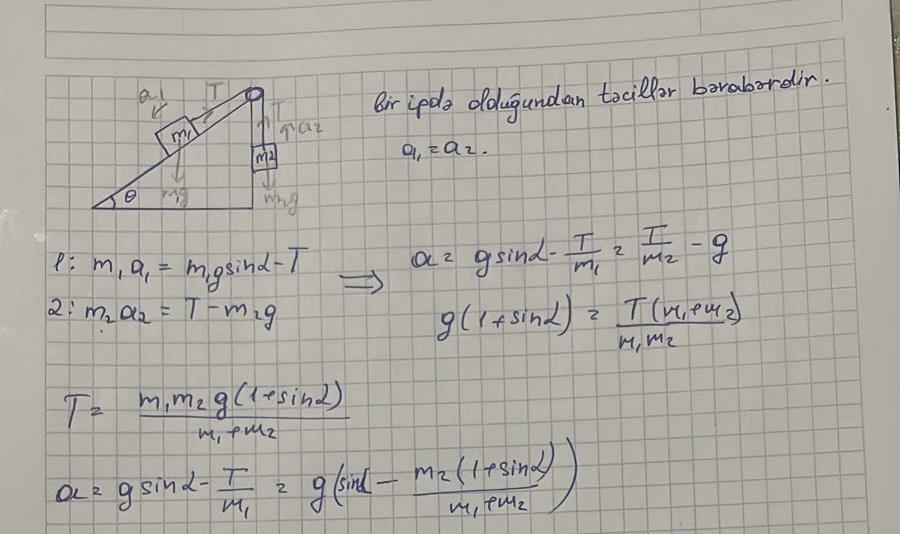 a₁ T
m₁ T a₂
m₂
θ m₁g m₂g
Bir ipdə olduğundan təcillər bərabərdir.
a₁ = a₂.
1: m₁a₁ = m₁gsinα - T
2: m₂a₂ = T - m₂g
⇒ a = gsinα - T/m₁ = T/m₂ - g
g(1+sinα) = T(m₁+m₂)/m₁m₂
T = m₁m₂g(1+sinα)/m₁+m₂
a = gsinα - T/m₁ = g(sinα - m₂(1+sinα)/m₁+m₂)